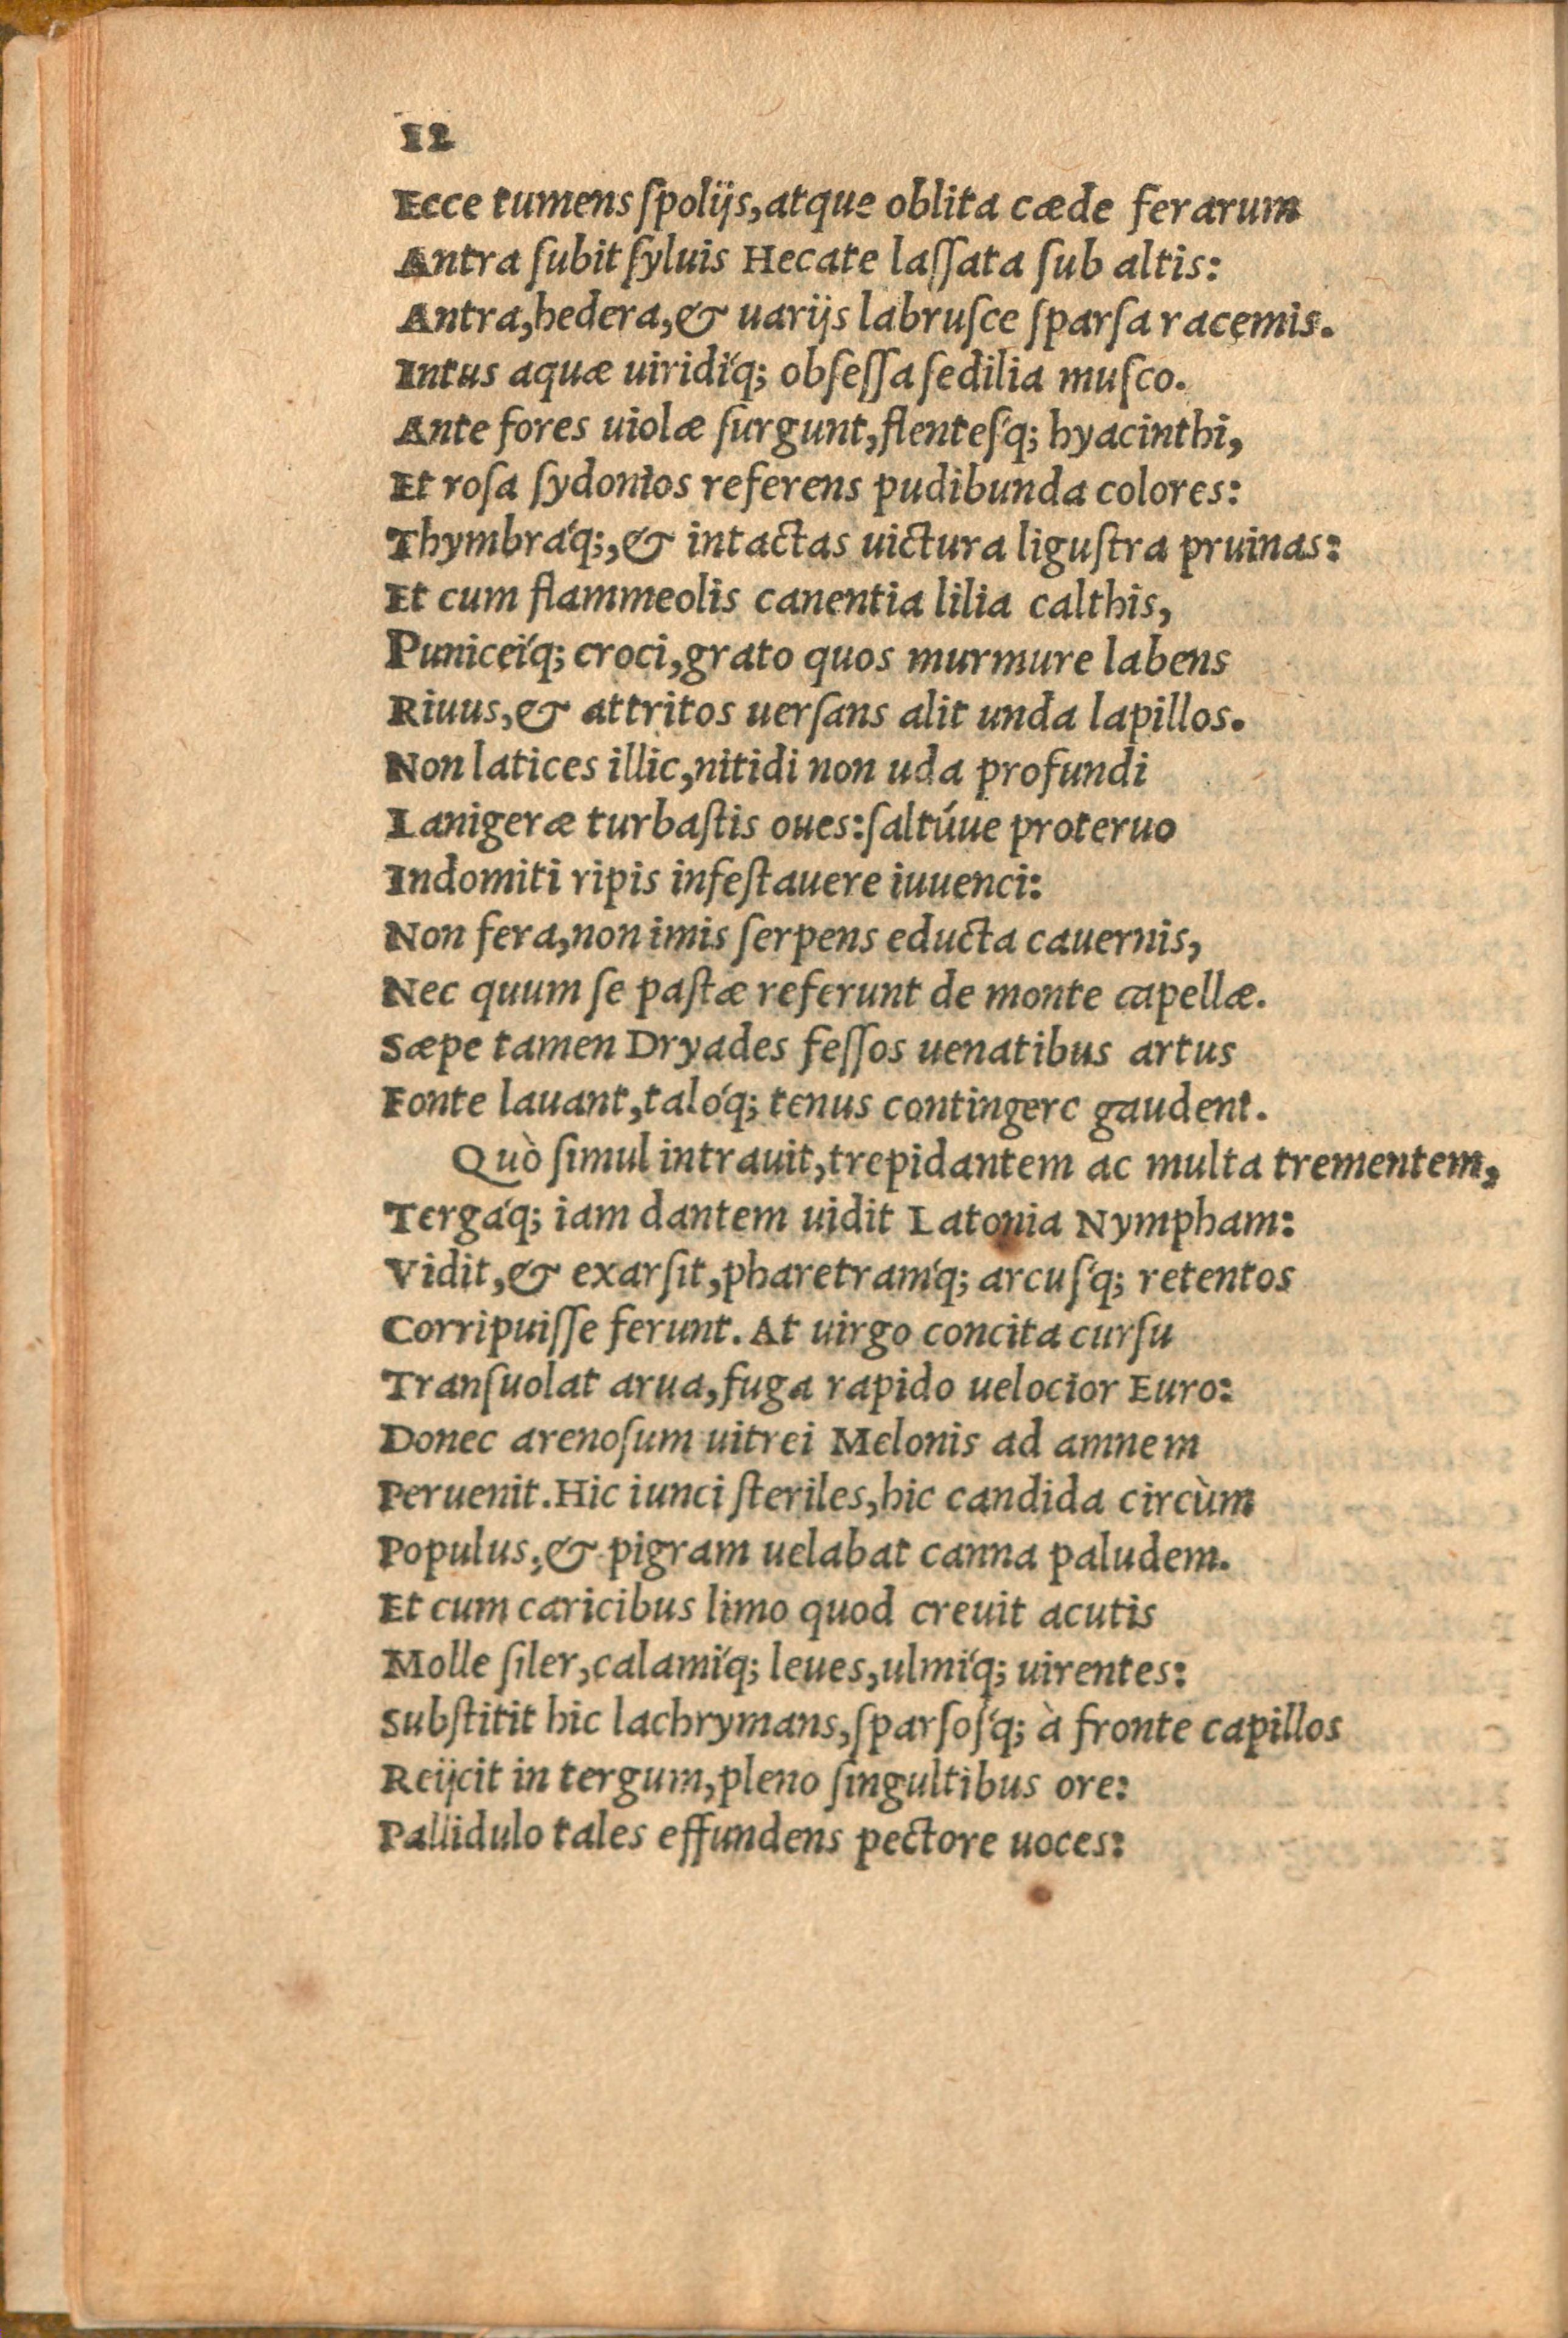 12
Ecce tumens ſpolijs, atque oblita cæde ferarum
Antra ſubit ſyluis Hecate laſſata ſub altis:
Antra, hedera, & uarijs labruſce ſparſa racemis.
Intus aquæ uiridíq; obſeſſa ſedilia muſco.
Ante fores uiolæ ſurgunt, flenteſq́; hyacinthi,
Et roſa ſydonios referens pudibunda colores:
Thymbráq;, & intactas uictura liguſtra pruinas:
Et cum flammeolis canentia lilia calthis,
Puniceíq; croci, grato quos murmure labens
Riuus, & attritos uerſans alit unda lapillos.
Non latices illic, nitidi non uda profundi
Lanigeræ turbaſtis oues: ſaltúue proteruo
Indomiti ripis infeſtauere iuuenci:
Non fera, non imis ſerpens educta cauernis,
Nec quum ſe paſtæ referunt de monte capellæ.
Sæpe tamen Dryades feſſos uenatibus artus
Fonte lauant, talóq; tenus contingere gaudent.
Quò ſimul intrauit, trepidantem ac multa trementem,
Tergáq; iam dantem uidit Latonia Nympham:
Vidit, & exarſit, pharetramq́; arcuſq́; retentos
Corripuiſſe ferunt. At uirgo concita curſu
Tranſuolat arua, fuga rapido uelocior Euro:
Donec arenoſum uitrei Melonis ad amnem
Peruenit. Hic iunci ſteriles, hic candida circùm
Populus, & pigram uelabat canna paludem.
Et cum caricibus limo quod creuit acutis
Molle ſiler, calamíq; leues, ulmíq; uirentes:
Subſtitit hic lachrymans, ſparſoſq́; à fronte capillos
Reijcit in tergum, pleno ſingultibus ore:
Pallidulo tales effundens pectore uoces: